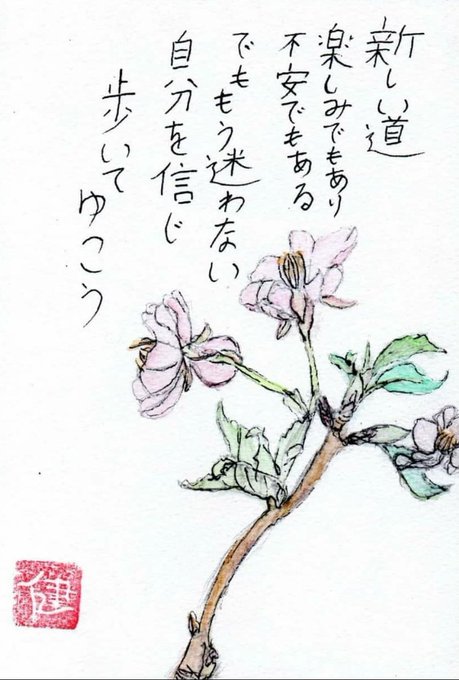 新しい道
楽しみでもあり
不安でもある
でももう迷わない
自分を信じ
歩いてゆこう
健